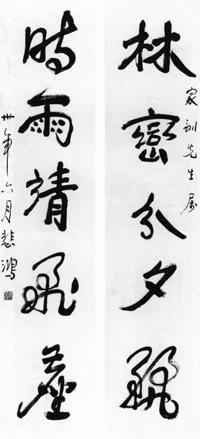 家訓先生屬
林巒分夕
時雨靖飛塵
卅年六月悲鴻